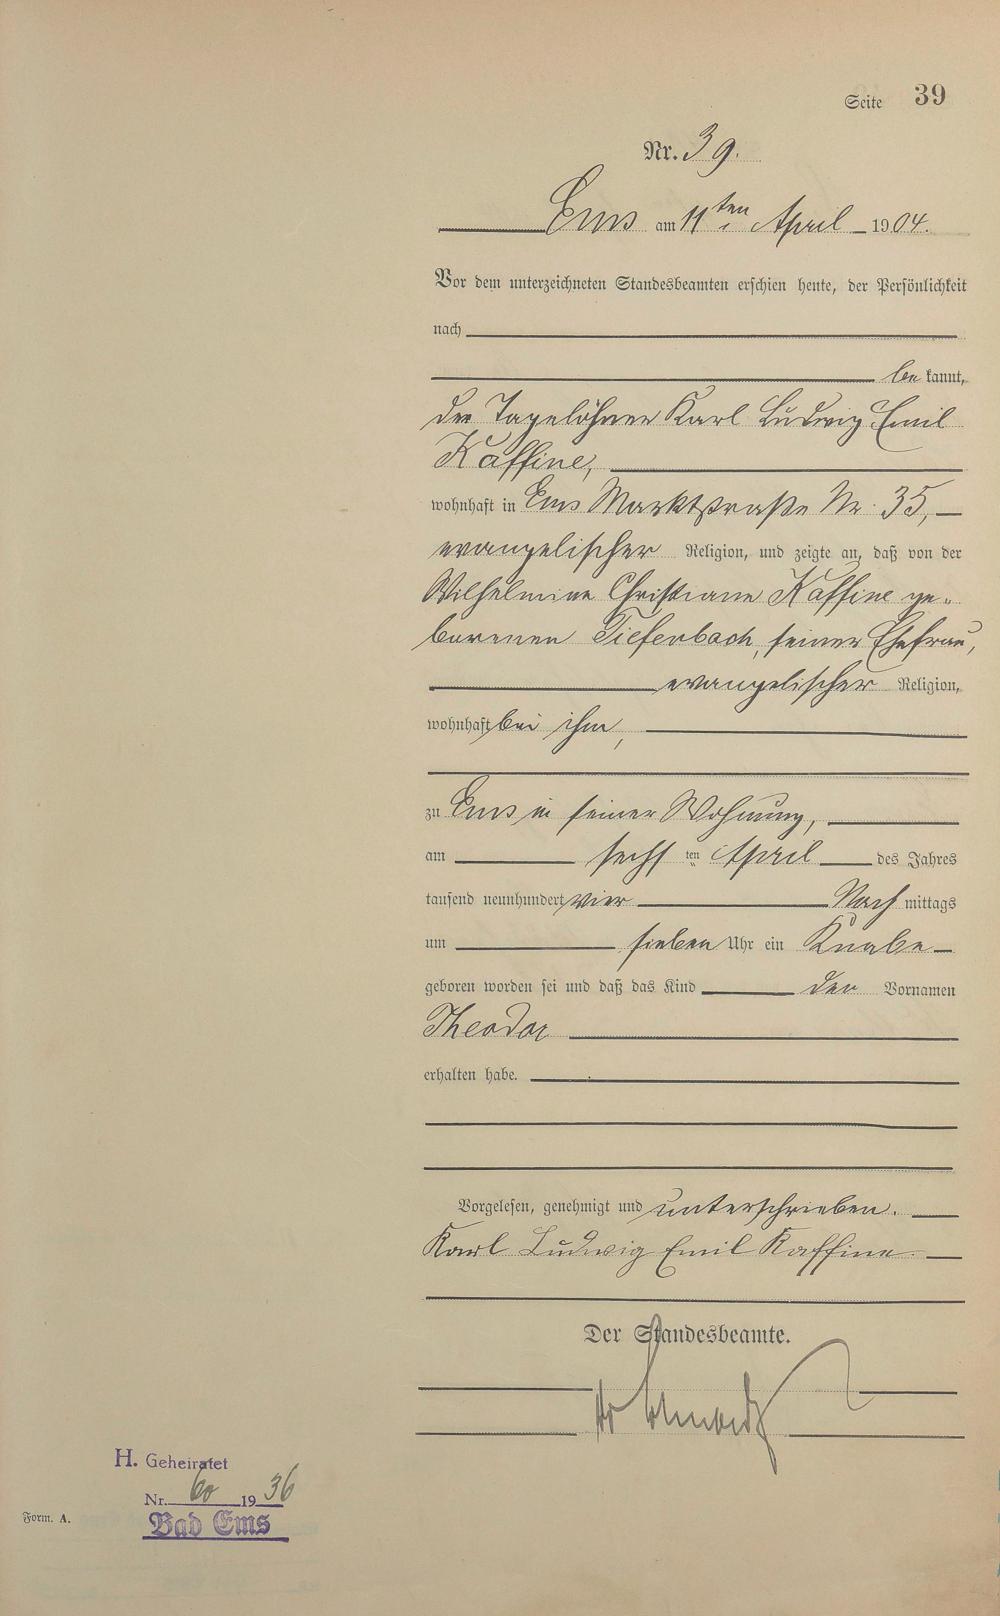 Seite 39
Nr. 39.
Ems am 11ten April 1904.
Vor dem unterzeichneten Standesbeamten erschien heute, der Persönlichkeit
nach
bekannt,
der Tagelöhner Karl Ludwig Emil
Kaffine,
wohnhaft in Ems Marktstraße Nr. 35,
evangelischer Religion, und zeigte an, daß von der
Wilhelmine Christiane Kaffine ge-
borenen Tiefenbach, seiner Ehefrau,
evangelischer Religion,
wohnhaft bei ihm,
zu Ems in seiner Wohnung,
am sechsten April des Jahres
tausend neunhundert vier Nachmittags
um sieben Uhr ein Knabe
geboren worden sei und daß das Kind den Vornamen
Theodor
erhalten habe.
Vorgelesen, genehmigt und unterschrieben.
Karl Ludwig Emil Kaffine
Der Standesbeamte.
H. Geheiratet
Nr. 60 1936
Bad Ems
Form. A.